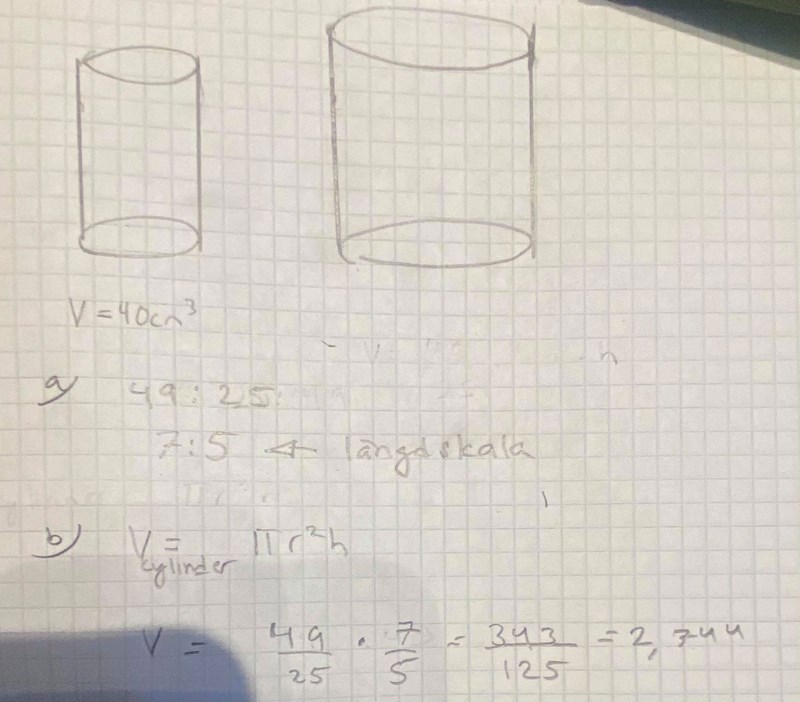 V = 40cm³
a) 49 : 25
7:5 ← längdskala
b) V = πr²h
cylinder
V = 49/25 · 7/5 = 343/125 = 2,744